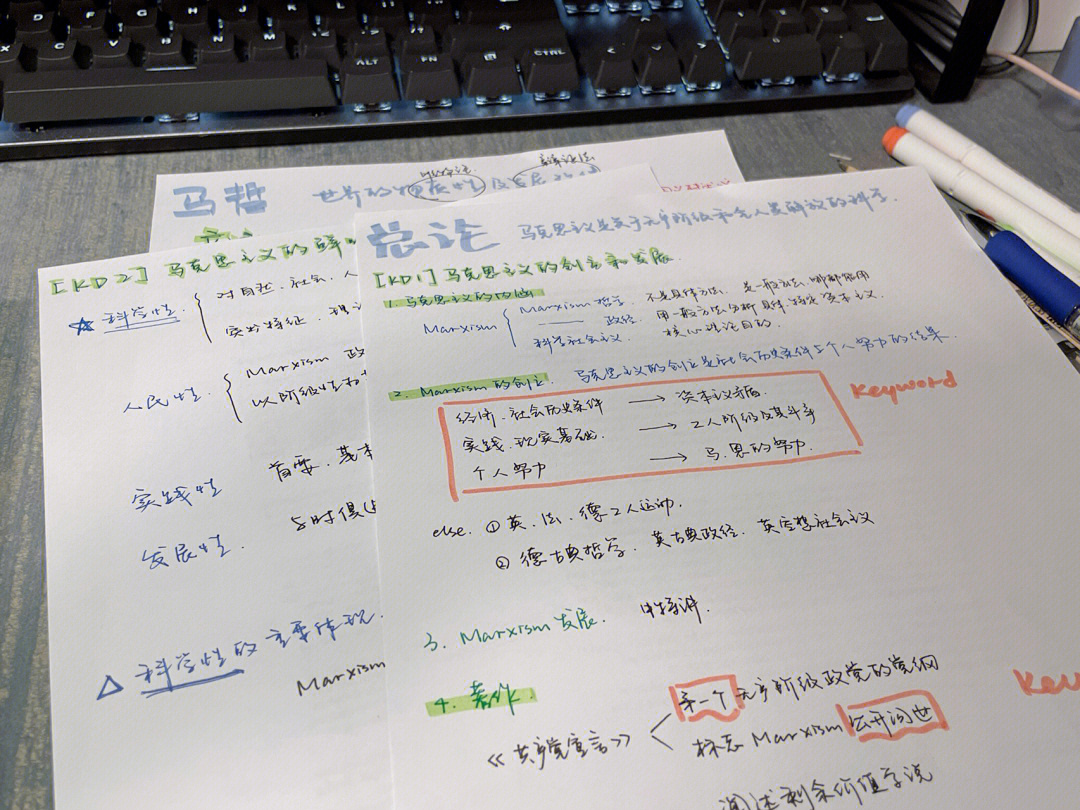 ALT
FN
CTRL
马哲
世界的物质性及发展
辩证法
总论 马克思主义是关于无产阶级和全人类解放的科学.
[KD1] 马克思主义的创立和发展.
1. 马克思主义的内涵
Marxism
Marxism 哲学 不是具体方法, 是一般方法, 哪都能用
政经 用一般方法分析具体
科学社会主义. 核心 目的.
2. Marxism 的创立. 马克思主义的创立是社会历史条件与个人努力的结果.
经济.社会历史条件 → 资本主义矛盾.
实践.现实基础. → 工人阶级及其斗争
个人努力 → 马.恩的努力.
Keyword
else. ① 英.法.德工人运动.
② 德古典哲学. 英古典政经. 英空想社会主义
3. Marxism 发展.
4. 著作.
《共产党宣言》
第一个无产阶级政党的党纲
标志 Marxism 公开问世
Key
阐述剩余价值学说
[KD2] 马克思主义的鲜
☆ 科学性.
对自然.社会.人
实物特征.
人民性.
Marxism 政
以阶级性
实践性 首要.基本
发展性. 与时俱进
△ 科学性的主要体现.
Marxism